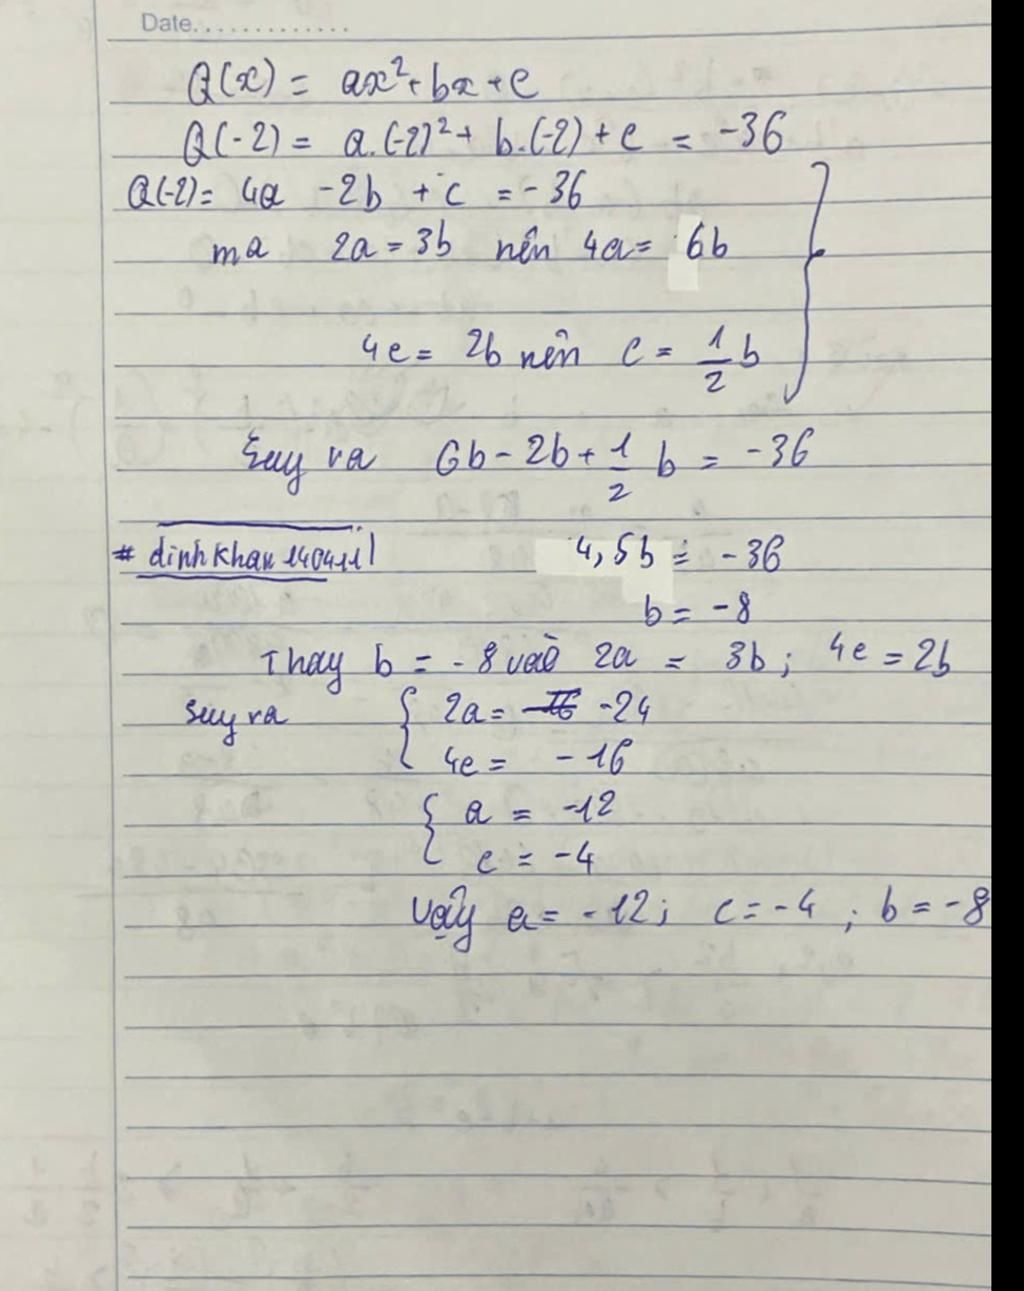 Date.............
Q(x) = ax²+bx+c
Q(-2) = a.(-2)² + b.(-2) + c = -36
Q(-2) = 4a -2b + c = -36
ma 2a = 3b nên 4a = 6b
4c = 2b nên c = 1/2 b
Suy ra 6b - 2b + 1/2 b = -36
# dinhkhan140411
4,5b = -36
b = -8
Thay b = -8 vào 2a = 3b; 4c = 2b
Suy ra { 2a = -24
4c = -16
{ a = -12
c = -4
Vậy a = -12; c = -4; b = -8